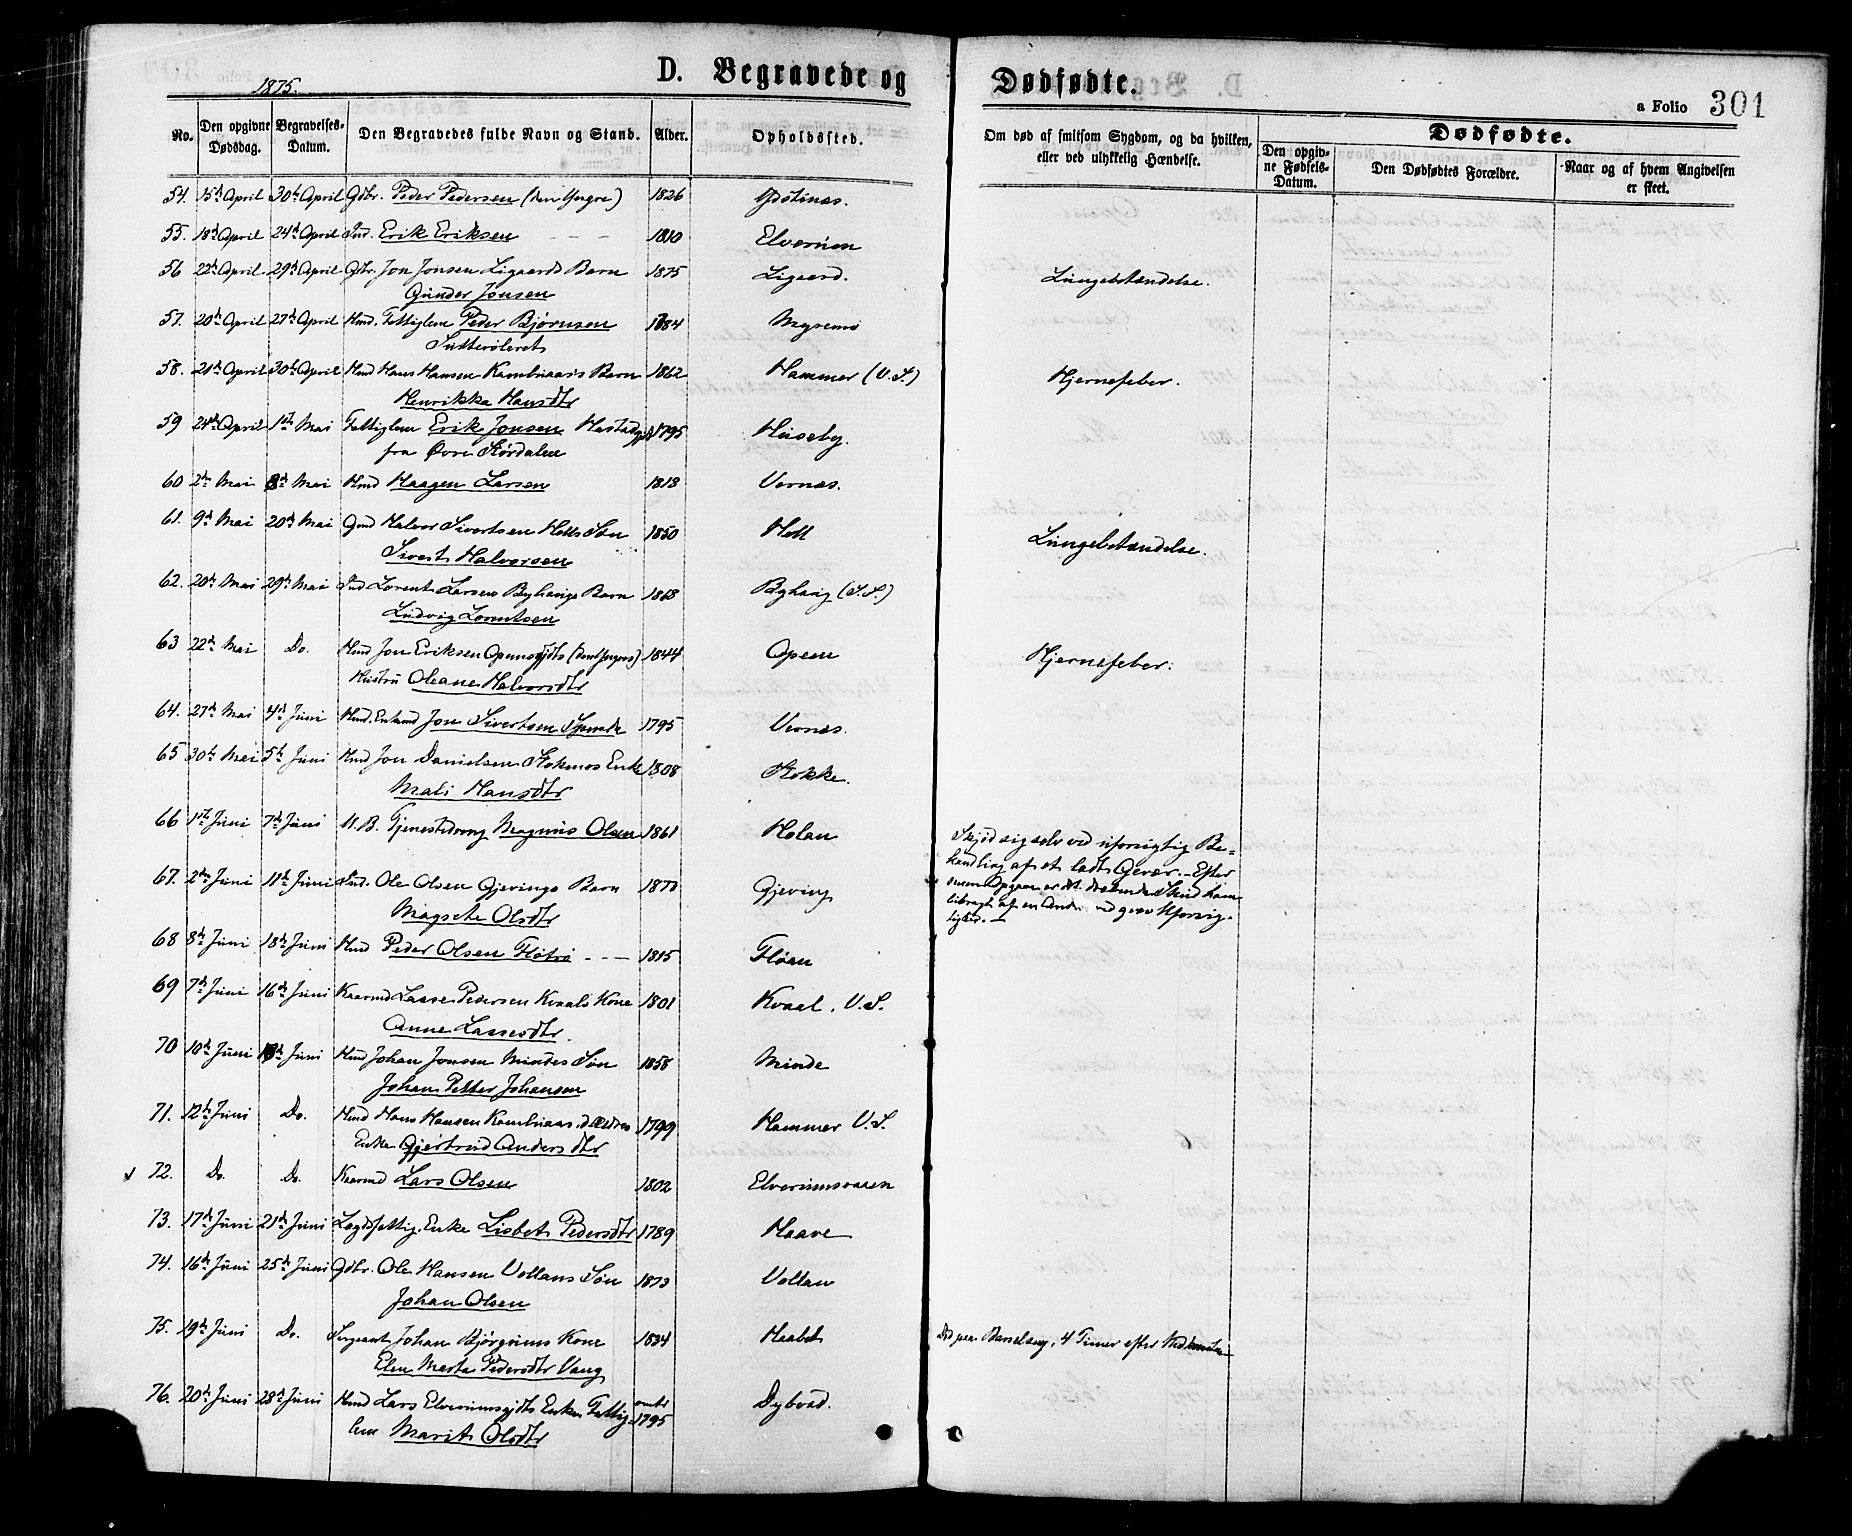 1875.
D. Begravede og
Dødfødte.
a Folio 301
No.
Den opgivne Dødsdag.
Begravelses-Datum.
Den Begravedes fulde Navn og Stand.
Alder.
Opholdssted.
Om død af smitsom Sygdom, og da hvilken,
eller ved ulykkelig Hændelse.
Dødfødte.
Den opgiv-
ne Fødsels-
Datum.
Den Dødfødtes Forældre.
Naar og af hvem Angivelsen
er skeet.
54. 15de April 30te April Gdbr. Peder Pedersen (den Yngre) 1826 Ydstines.
55. 18de April 24de April Ind. Erik Eriksen 1810 Elverum
56 22de April 29de April Gdbr. Jon Jonsen Ligaards Barn 1875 Ligaard. Lungebetændelse.
Gunder Jonsen
57. 20de April 27de April Hmd. Fattiglem Peder Bjørnsen 1784 Mysemo
58. 21de April 30te April Hmd Hans Hansen Kambuaas Barn 1862 Hammer (V.S.) Hjernefeber.
Henrikka Hansdtr
59 24de April 1ste Mai Fattiglem Erik Jonsen 1795 Huseby.
fra Øvre Størdalen
60 2den Mai 8de Mai Hmd Haagen Larsen 1818 Vernes.
61. 9de Mai 20de Mai Gmd Halvor Sivertsen Hells Søn 1850 Hell Lungebetændelse.
Sivert Halvorsen
62. 20de Mai 29de Mai Ind Lorents Larsens Byhaugs Barn 1868 Byhaug (S.S.)
Ludvig Lorentsen
63 22de Mai Do. Hmd Jon Eriksen 1844 Opeem Hjernefeber.
Hustru Oleane Halvorsdtr
64. 27de Mai 4de Juni Hmd. Enkemd Jon Sivertsen 1795 Vernes.
65 30te Mai 5te Juni Hmd Jon Danielsen Stokmos Enke 1808 Stokke.
Mali Hansdtr
66 1ste Juni 7de Juni U.B. Tjenestedreng Magnus Olsen 1861 Holan Skjød sig selv ved uforsigtig Be-
handling af et ladt Gevær. Efter
67. 2den Juni 11te Juni Ind. Ole Olsen Gjevings Barn 1873 Gjeving
af en Anden ved grov Uforsig-
tighed.
Magrete Olsdtr
68 8de Juni 18de Juni Hmd Peder Olsen 1815 Fløan
69 7de Juni 16de Juni Kaarmd Lasse Pedersen Kvaals Kone 1801 Kvaal. V.S.
Anne Lassesdtr.
70 10de Juni Juni Hmd Johan Jonsen Mindes Søn 1858 Minde
Johan Petter Johansen
71. 12te Juni Do. Hmd Hans Hansen Kambuaas d. Ældres 1799 Hammer V.S.
Enke Gjertrud Andersdtr
72. Do. Do. Kaarmd Lars Olsen 1802 Elverumsvaren
73. 17de Juni 21de Juni Lægdsfattig, Enke Lisbet Pedersdtr 1789 Haave
74. 16de Juni 25de Juni Gdbr. Ole Hansen Vollans Søn 1873 Vollan
Johan Olsen
75. 19de Juni Do. Sergeant Johan Bjørgums Kone 1834 Haabet Død paa Barselseng, 4 Timer efter Nedkomsten
Elen Marta Pedersdtr Vang
76. 20de Juni 28de Juni Hmd Lars Elverumsgjdts Enke Fattig- omtr 1795 Dybvad.
lem Marit Olsdtr